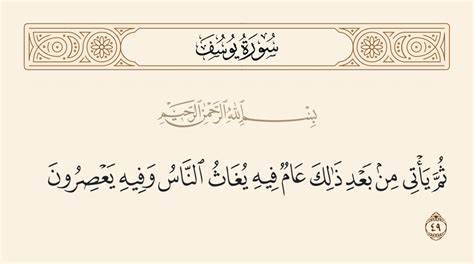 سُورَةُ يُوسُفَ
بِسْمِ اللَّهِ الرَّحْمَٰنِ الرَّحِيمِ
ثُمَّ يَأْتِي مِنۢ بَعْدِ ذَٰلِكَ عَامٌ فِيهِ يُغَاثُ النَّاسُ وَفِيهِ يَعْصِرُونَ
٤٩